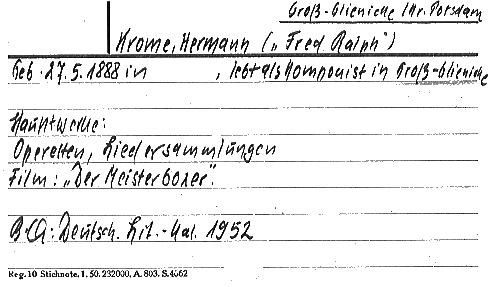 Groß-Glienicke Kr. Potsdam
Krome, Hermann („Fred Ralph")
Geb. 27.5.1888 in , lebt als Komponist in Groß-Glienicke
Hauptwerke:
Operetten, Liedersammlungen
Film: „Der Meisterboxer".
B.Q: Deutsch. Lit.-Kal. 1952
Reg. 10 Stichnote. 1. 50. 232000, A. 803. S. 4662